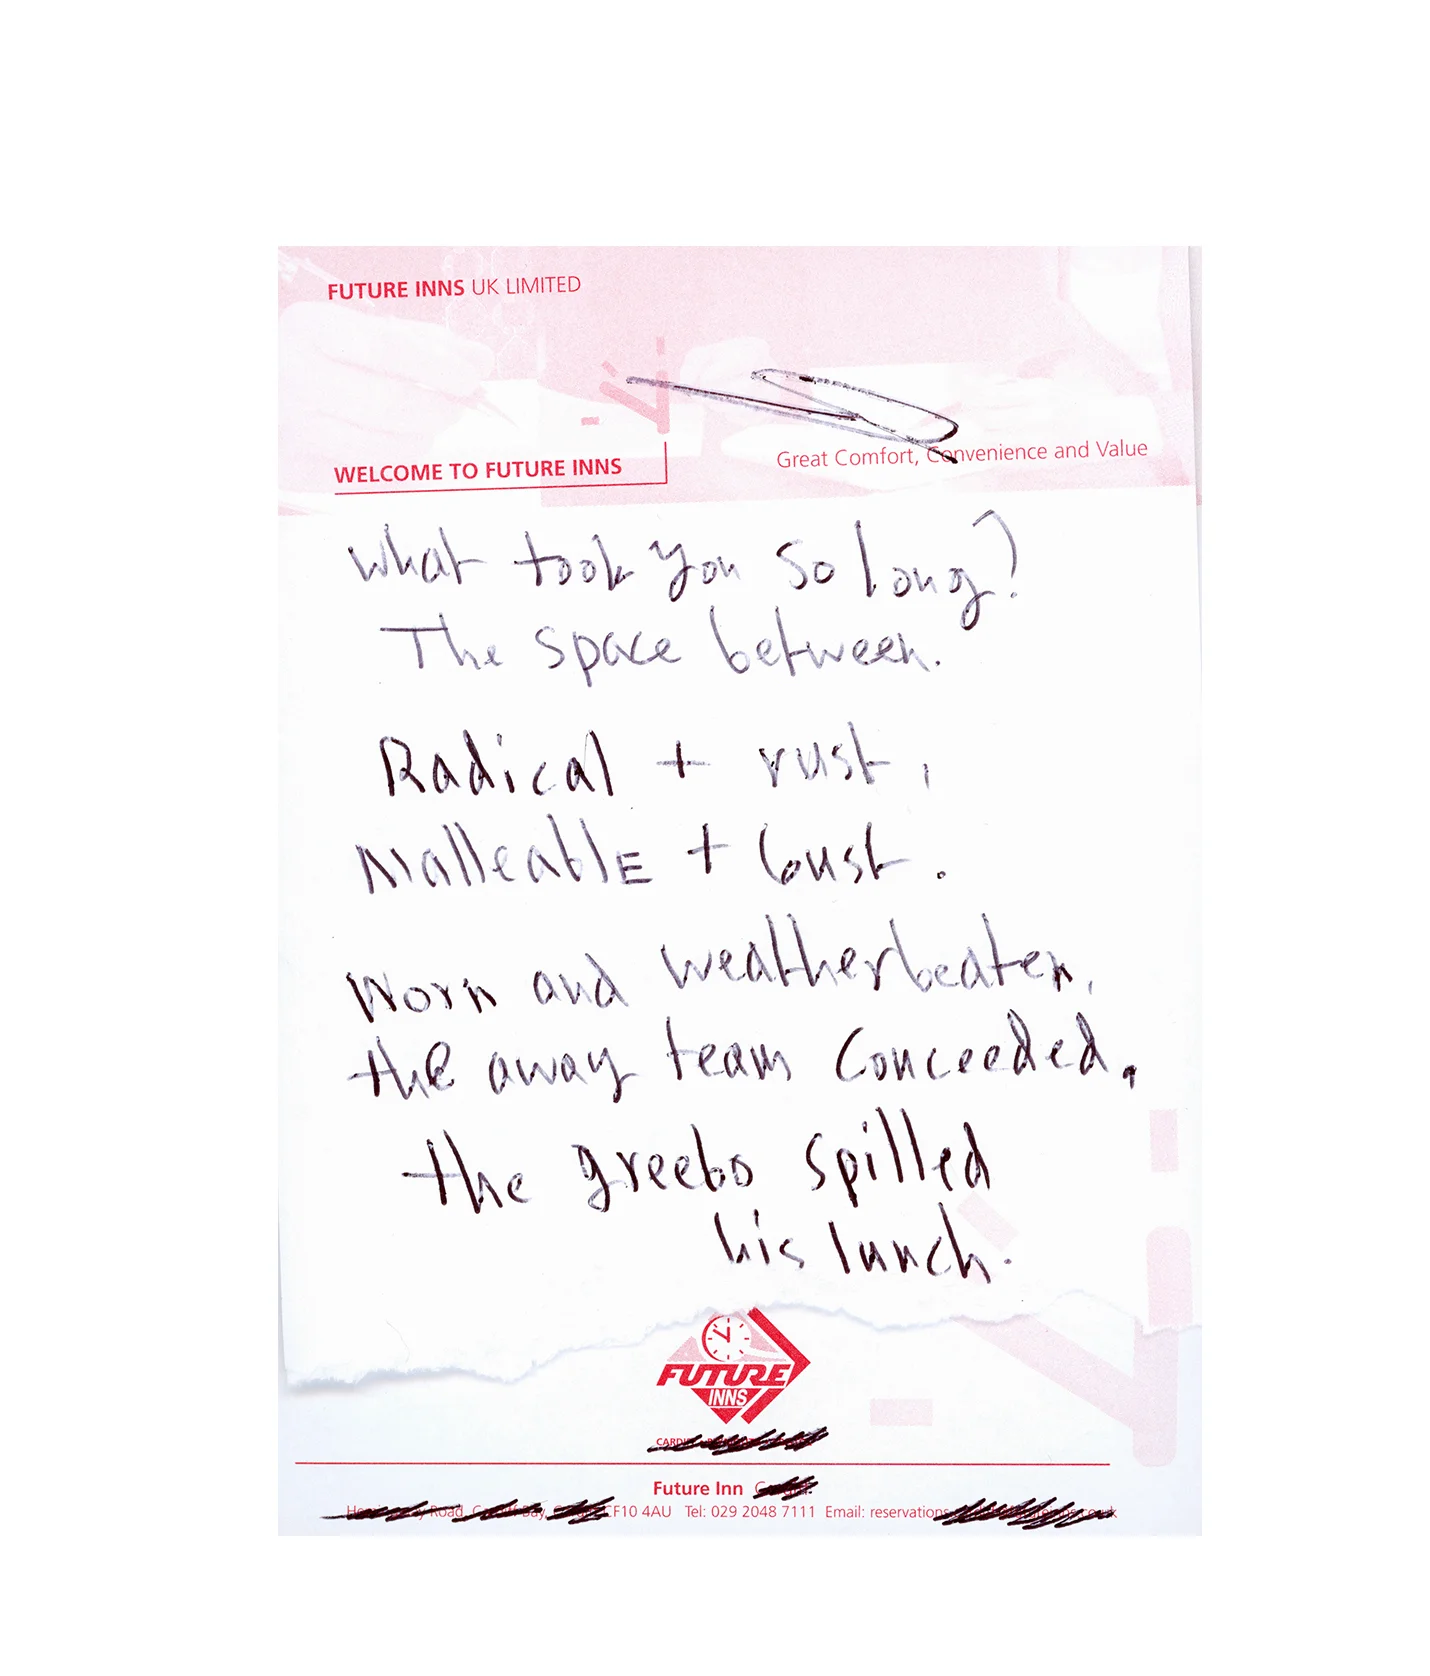 FUTURE INNS UK LIMITED
WELCOME TO FUTURE INNS
Great Comfort, Convenience and Value
What took you so long?
The space between.
Radical + rust,
MalleablE + bust.
Worn and weatherbeaten,
the away team conceeded,
the greebo spilled
his lunch.
FUTURE
INNS
Future Inn
Road, Bay, CF10 4AU Tel: 029 2048 7111 Email: reservations